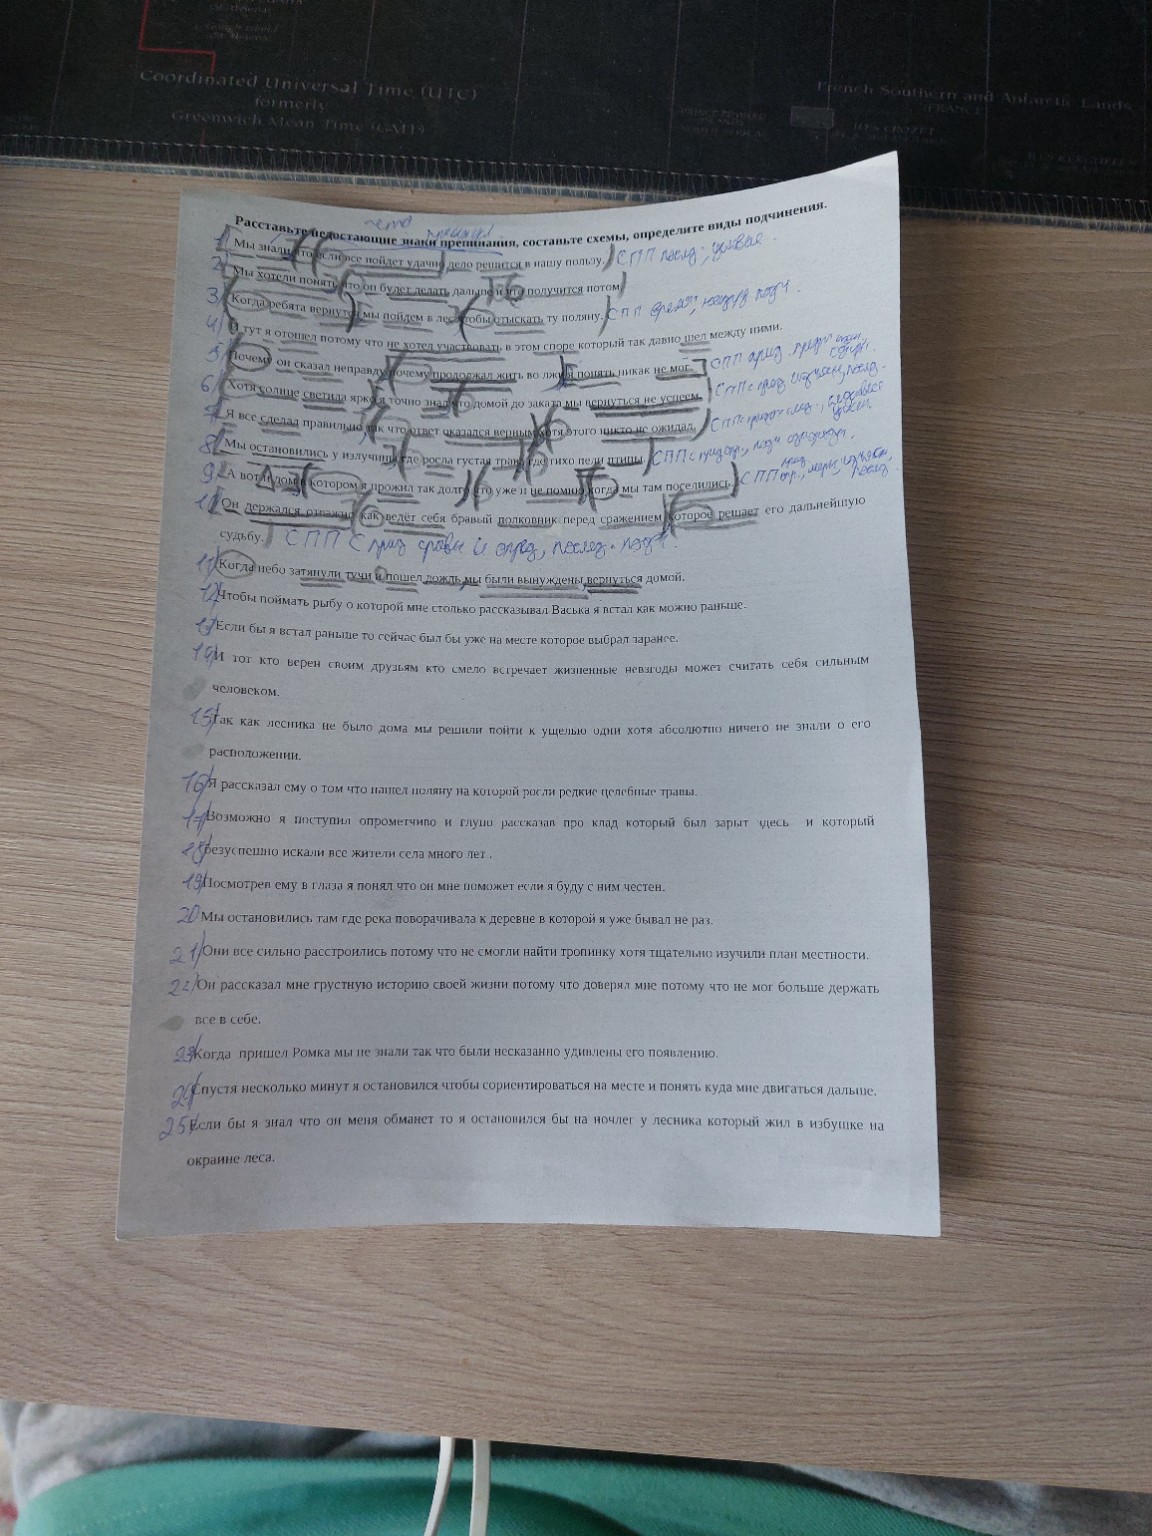 Coordinated Universal Time (UTC)
formerly
Greenwich Mean Time (GMT)
French Southern and Antarctic Lands
(FRANCE)
Расставьте недостающие знаки препинания, составьте схемы, определите виды подчинения.
1) Мы знали что если все пойдет удачно дело решится в нашу пользу. СПП послед.; условия.
2 Мы хотели понять что он будет делать дальше и что получится потом
3 Когда ребята вернутся мы пойдем в лес чтобы отыскать ту поляну. СПП
4) И тут я отошел потому что не хотел участвовать в этом споре который так давно шел между ними.
5 Почему он сказал неправду почему продолжал жить во лжи я понять никак не мог. СПП
6 Хотя солнце светила ярко я точно знал что домой до заката мы вернуться не успеем. СПП с
7 Я все сделал правильно так что ответ оказался верным хотя этого никто не ожидал. СПП
8 Мы остановились у излучины где росла густая трава где тихо пели птицы. СПП с
9 А вот и дом в котором я прожил так долго что уже и не помню когда мы там поселились. СПП
Он держался отважно как ведёт себя бравый полковник перед сражением которое решает его дальнейшую
судьбу. СПП с прид. сравн и опред, послед. подч.
11 Когда небо затянули тучи и пошел дождь мы были вынуждены вернуться домой.
12 Чтобы поймать рыбу о которой мне столько рассказывал Васька я встал как можно раньше.
Если бы я встал раньше то сейчас был бы уже на месте которое выбрал заранее.
И тот кто верен своим друзьям кто смело встречает жизненные невзгоды может считать себя сильным
человеком.
15 Так как лесника не было дома мы решили пойти к ущелью одни хотя абсолютно ничего не знали о его
расположении.
16 Я рассказал ему о том что нашел поляну на которой росли редкие целебные травы.
17 Возможно я поступил опрометчиво и глупо рассказав про клад который был зарыт здесь и который
18 безуспешно искали все жители села много лет .
19 Посмотрев ему в глаза я понял что он мне поможет если я буду с ним честен.
20 Мы остановились там где река поворачивала к деревне в которой я уже бывал не раз.
21) Они все сильно расстроились потому что не смогли найти тропинку хотя тщательно изучили план местности.
22) Он рассказал мне грустную историю своей жизни потому что доверял мне потому что не мог больше держать
все в себе.
23 Когда пришел Ромка мы не знали так что были несказанно удивлены его появлению.
24 Спустя несколько минут я остановился чтобы сориентироваться на месте и понять куда мне двигаться дальше.
25 Если бы я знал что он меня обманет то я остановился бы на ночлег у лесника который жил в избушке на
окраине леса.